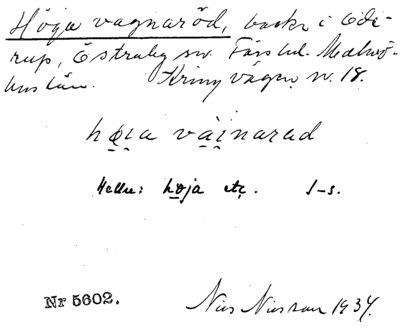 Höga vagnaröd, backe i Öde-
rup, Östraby sn. Färs hd. Malmö-
hus län. Kring vägen n. 18.
hø̱i̯a vài̯narad
Hellre: hø̱ja etc. I-s.
Nr 5602. Nils Nilsson 1934.